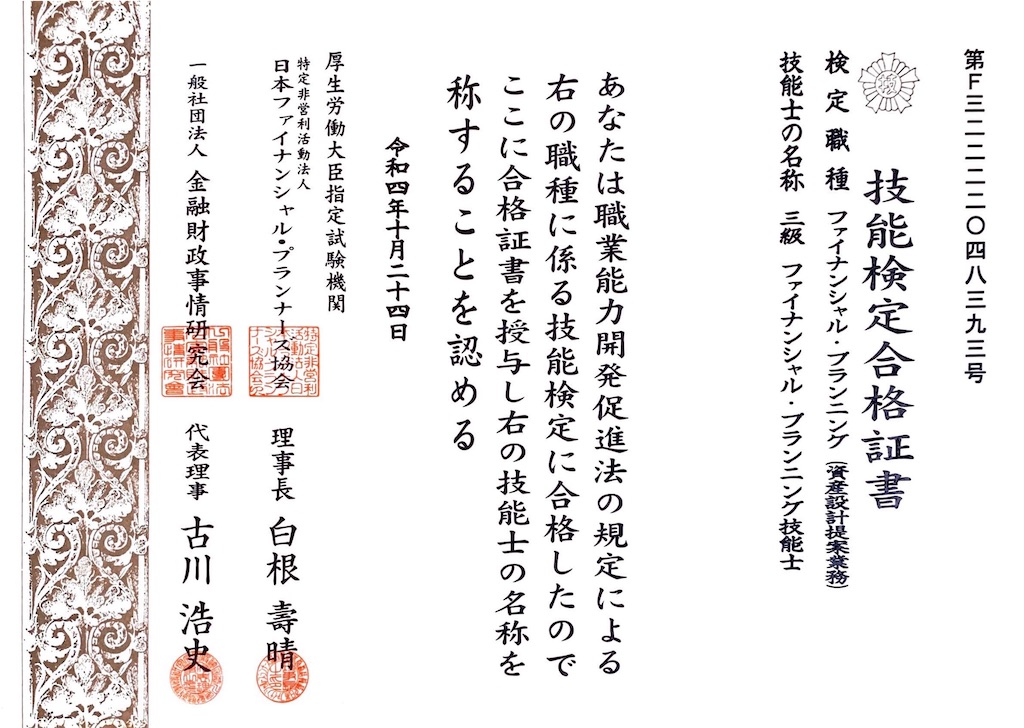 第F三二二二二〇四八三九三号
技能検定合格証書
検定職種 ファイナンシャル・プランニング(資産設計提案業務)
技能士の名称 三級 ファイナンシャル・プランニング技能士
あなたは職業能力開発促進法の規定による
右の職種に係る技能検定に合格したので
ここに合格証書を授与し右の技能士の名称を
称することを認める
令和四年十月二十四日
厚生労働大臣指定試験機関
特定非営利活動法人
日本ファイナンシャル・プランナーズ協会 理事長 白根 壽晴
一般社団法人 金融財政事情研究会 代表理事 古川 浩史